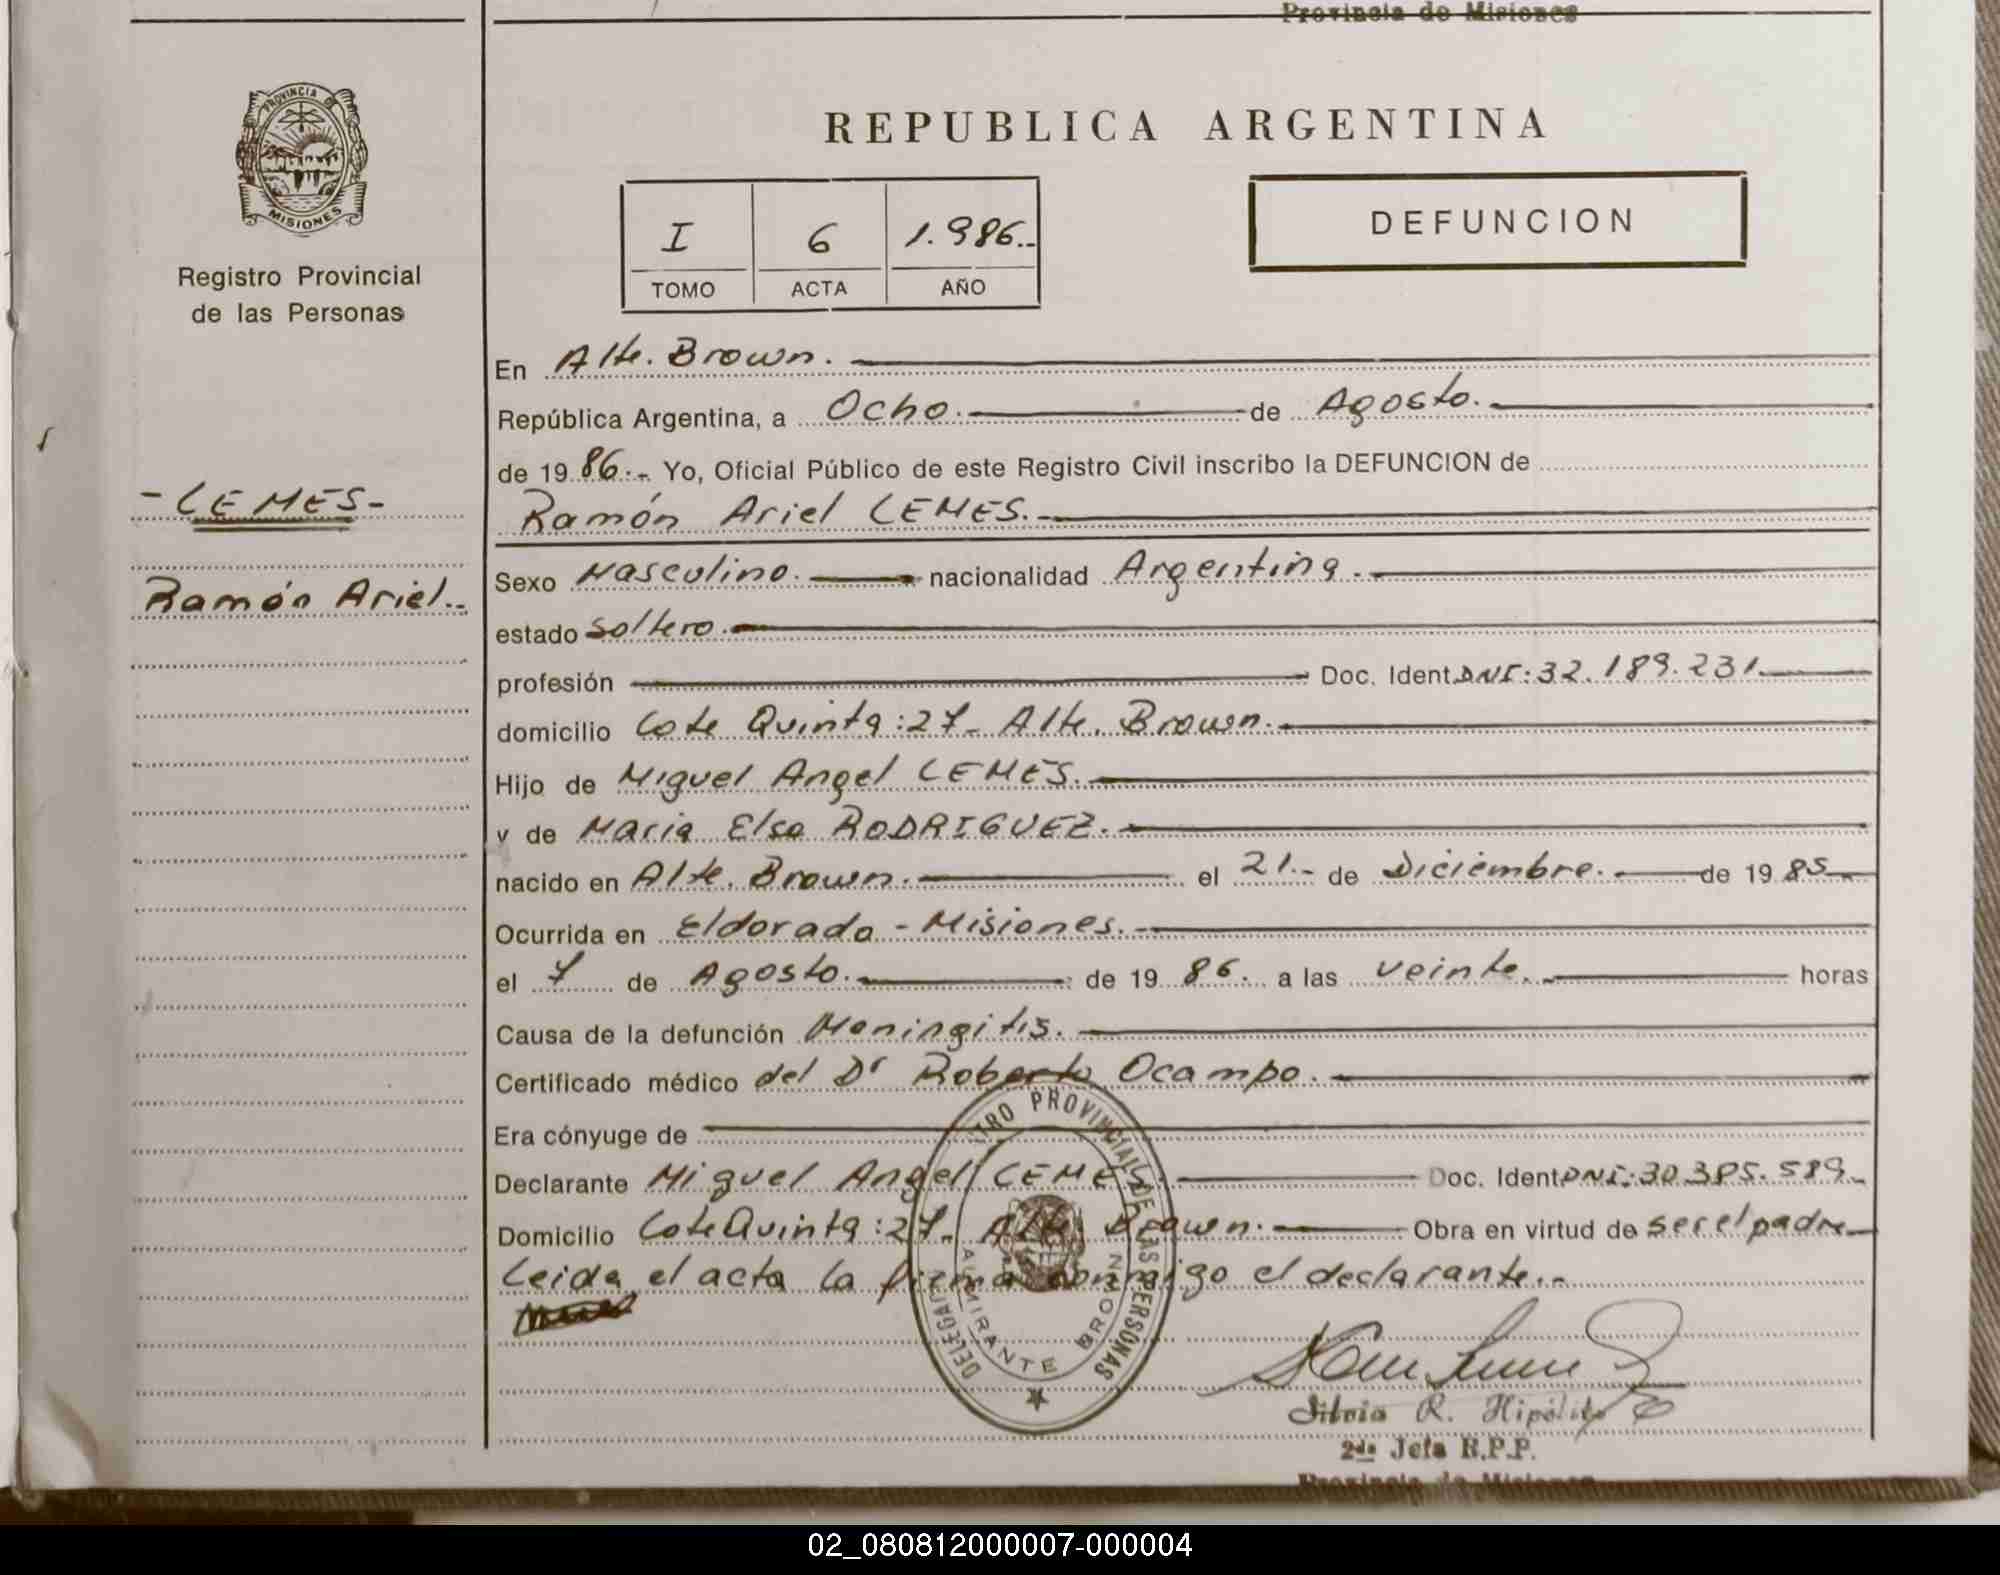 Provincia de Misiones
PROVINCIA DE
MISIONES
Registro Provincial
de las Personas
- LEMES -
Ramón Ariel..
REPUBLICA ARGENTINA
I 6 1.986..
TOMO ACTA AÑO
DEFUNCION
En Alte. Brown.
República Argentina, a Ocho. de Agosto.
de 19 86.- Yo, Oficial Público de este Registro Civil inscribo la DEFUNCION de
Ramón Ariel LEMES.-
Sexo Masculino. nacionalidad Argentina.
estado Soltero.
profesión Doc. Ident DNI: 32.189.231.
domicilio Lote Quinta: 27- Alte. Brown.
Hijo de Miguel Angel LEMES.
y de Maria Elsa RODRIGUEZ.
nacido en Alte. Brown. el 21.- de Diciembre. de 19 85
Ocurrida en Eldorado - Misiones.
el 7 de Agosto. de 19 86. a las veinte. horas
Causa de la defunción Meningitis.
Certificado médico del Dr Roberto Ocampo.
Era cónyuge de
Declarante Miguel Angel LEMES. Doc. Ident DNI: 30.385.589.
Domicilio Lote Quinta: 27. Alte. Brown. Obra en virtud de ser el padre
Leida el acta la firma conmigo el declarante.-
TRO PROVINCIAL DE LAS PERSONAS
DELEGACI
ALMIRANTE BROWN
Silvia R. Hipólito
2da Jefa R.P.P.
Provincia de Misiones
02_080812000007-000004